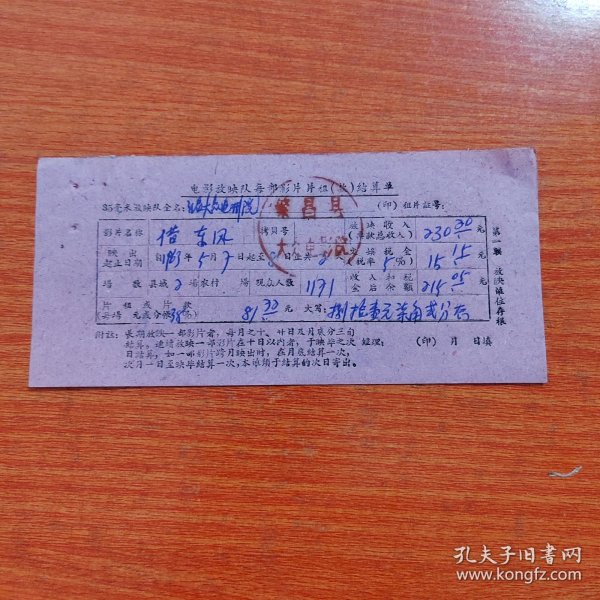 电影放映队每部影片片租(款)结算单
35毫米放映队全名: (印) 租片証号:
繁昌县
影片名称 借东风 拷貝号 放映收入(票款总收入) 230.30 元
映出起止日期 自1983年5月7日起至8日止共2 放映税金(税率5%) 15.15 元
場数 县城2場农村 場 观众人数 1171 收入扣税金后余额 215.05 元
片租或片款 81 元 大写: 捌拾壹元柒角贰分
第一联 放映单位存根
附註: 长期放映一部影片者,每月之十、廿日及月底分三旬
結算。連續放映一部影片在十日以內者,于映毕之次 經理:
日結算,如一部影片跨月映出时,在月底結算一次, (印) 月 日填
次月一日至映毕結算一次,本单须于結算的次日寄出。
孔夫子旧书网
www.kongfz.com